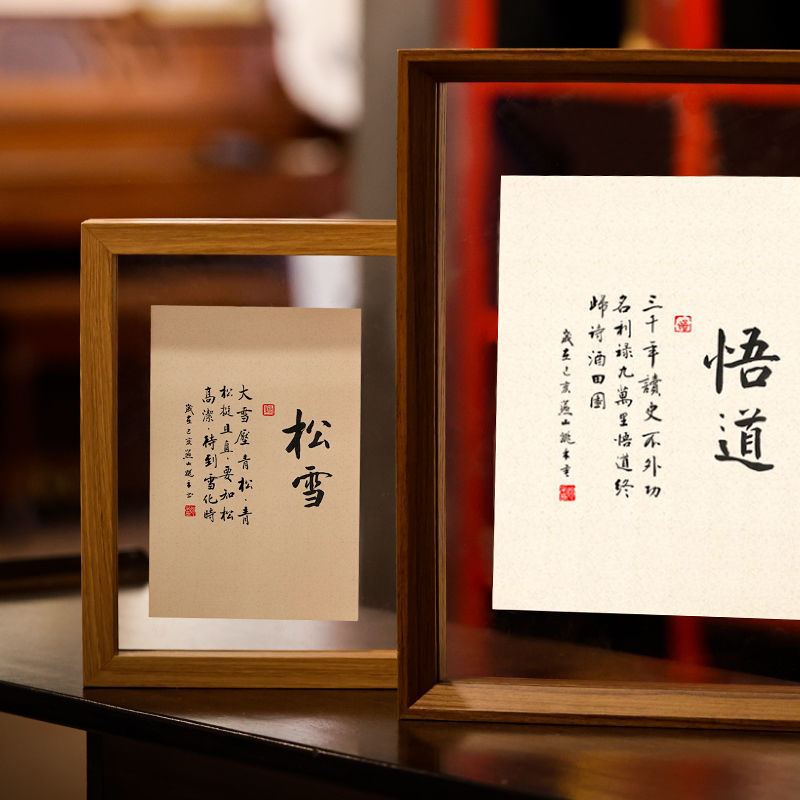 松雪
大雪壓青松·青
松挺且直·要知松
高潔·待到雪化時
歲在己亥燕山
悟道
三十年讀史不外功
名利祿九萬里悟道終
歸詩酒田園
歲在己亥燕山